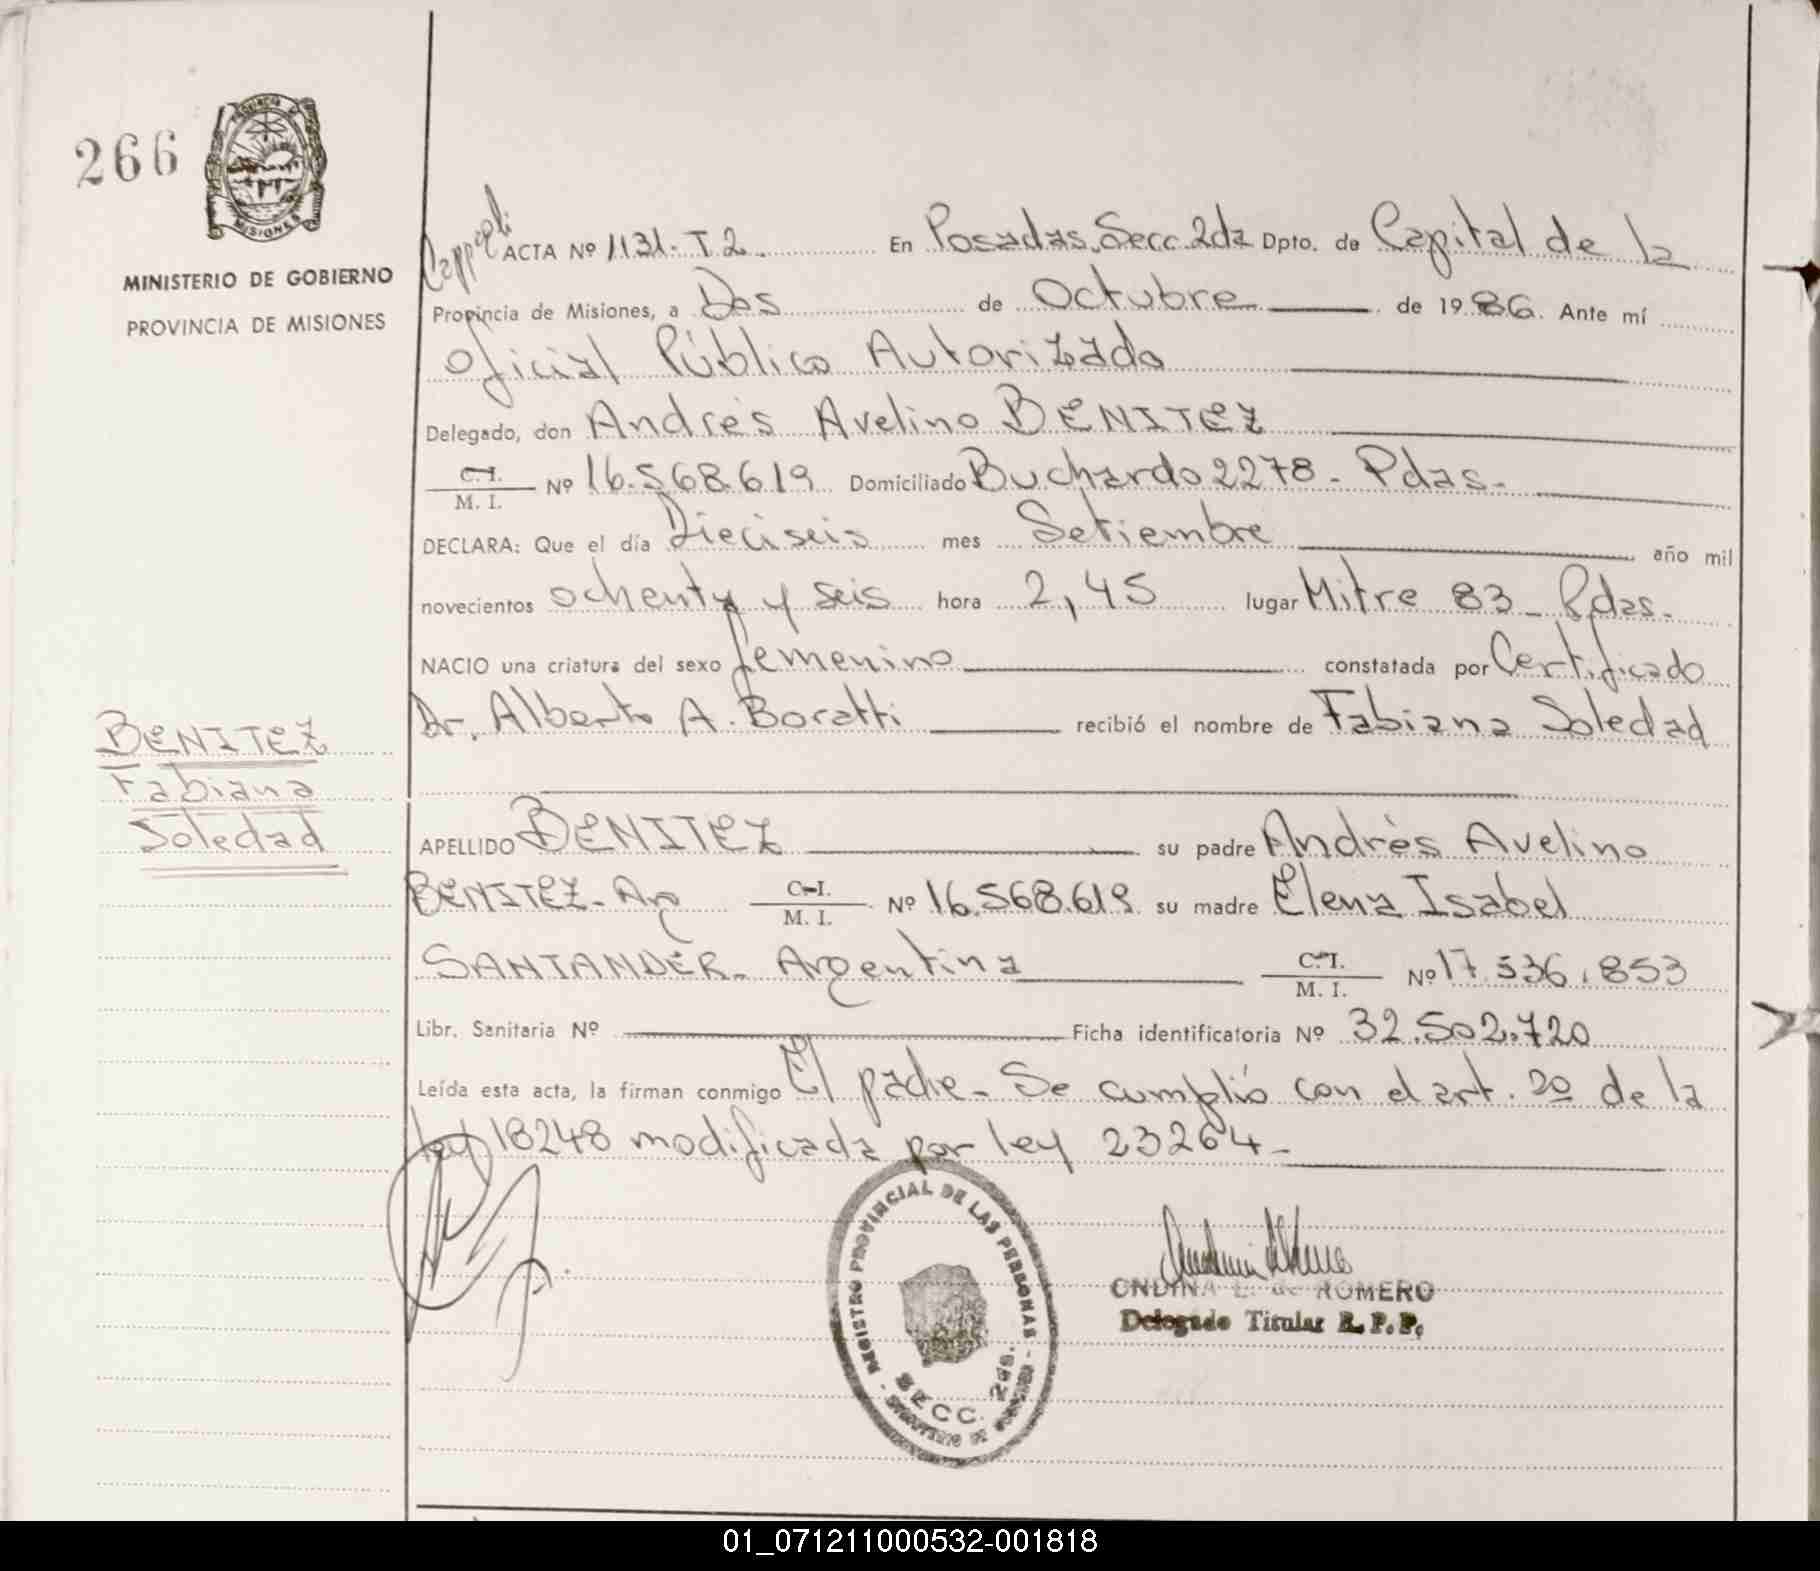 266
MISIONES
MINISTERIO DE GOBIERNO
PROVINCIA DE MISIONES
ACTA Nº 1131. T 2. En Posadas, Secc. 2da Dpto. de Capital de la
Provincia de Misiones, a Dos de Octubre de 1986. Ante mí
Oficial Público Autorizado
Delegado, don Andrés Avelino BENITEZ
C. I.
M. I. Nº 16.568.619 Domiciliado Buchardo 2278 - Pdas.
DECLARA: Que el día Dieciseis mes Setiembre año mil
novecientos ochenta y seis hora 2,45 lugar Mitre 83 - Pdas.
NACIO una criatura del sexo femenino constatada por Certificado
Dr. Alberto A. Boratti recibió el nombre de Fabiana Soledad
BENITEZ
Fabiana
Soledad
APELLIDO BENITEZ su padre Andrés Avelino
BENITEZ - Arg C. I.
M. I. Nº 16.568.619 su madre Elena Isabel
SANTANDER - Argentina C. I.
M. I. Nº 17.536.853
Libr. Sanitaria Nº Ficha identificatoria Nº 32.502.720
Leída esta acta, la firman conmigo El padre - Se cumplió con el art. 2º de la
ley 18248 modificada por ley 23264 -
REGISTRO PROVINCIAL DE LAS PERSONAS
SECC. 2da.
MINISTERIO DE GOBIERNO
ONDINA de ROMERO
Delegado Titular R. P. P.
01_071211000532-001818